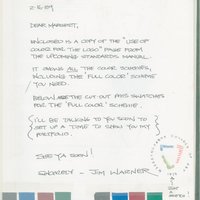 2-16-89
DEAR MARGARET,
ENCLOSED IS A COPY OF THE "USE OF
COLOR FOR THE LOGO" PAGE FROM
THE UPCOMING STANDARDS MANUAL.
IT SHOWS ALL THE COLOR SCHEMES,
INCLUDING THE 'FULL COLOR' SCHEME
YOU NEED.
BELOW ARE THE CUT OUT PMS SWATCHES
FOR THE 'FULL COLOR' SCHEME.
(I'LL BE TALKING TO YOU SOON TO
SET UP A TIME TO SHOW YOU MY
PORTFOLIO.)
SEE YA SOON!
JIM WARNER